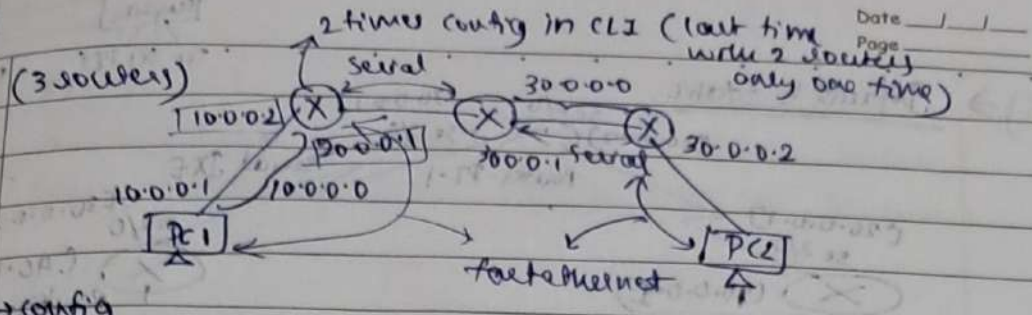 2 times config in CLI (last time
Date __/__/__
Page
with 2 routers
only one time)
(3 routers)
serial
30.0.0.0
10.0.0.2
20.0.0.1
30.0.0.1
serial
30.0.0.2
10.0.0.1
10.0.0.0
PC1
PC2
fastethernet
→config